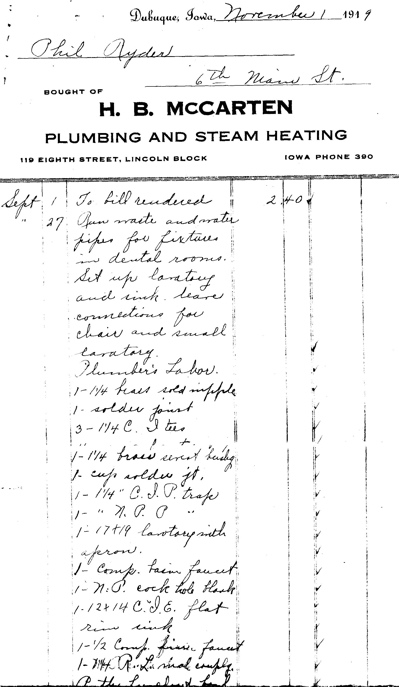 Dubuque, Iowa, November 1 1919
Phil Ryder
6th Main St.
BOUGHT OF
H. B. McCARTEN
PLUMBING AND STEAM HEATING
119 EIGHTH STREET, LINCOLN BLOCK IOWA PHONE 390
Sept 1 To bill rendered 2 40
" 27 Run waste and water
pipes for fixtures
in dental rooms.
Set up lavatory
and sink. leave
connections for
chair and small
lavatory.
Plumber's Labor.
1- 1¼ brass sold nipple
1- solder joint
3- 1¼ C. I tees
1- 1¼ brass
1- cup solder jt.
1- 1¼" C. I. P. trap
1- " N. P. P "
1- 17+19 lavatory with
apron.
1- Comp. basin faucet
1- N. P. cock hole blank
1- 12+14 C. I. E. flat
rim sink
1- ½ Comp. faucet
1- R. L. supply